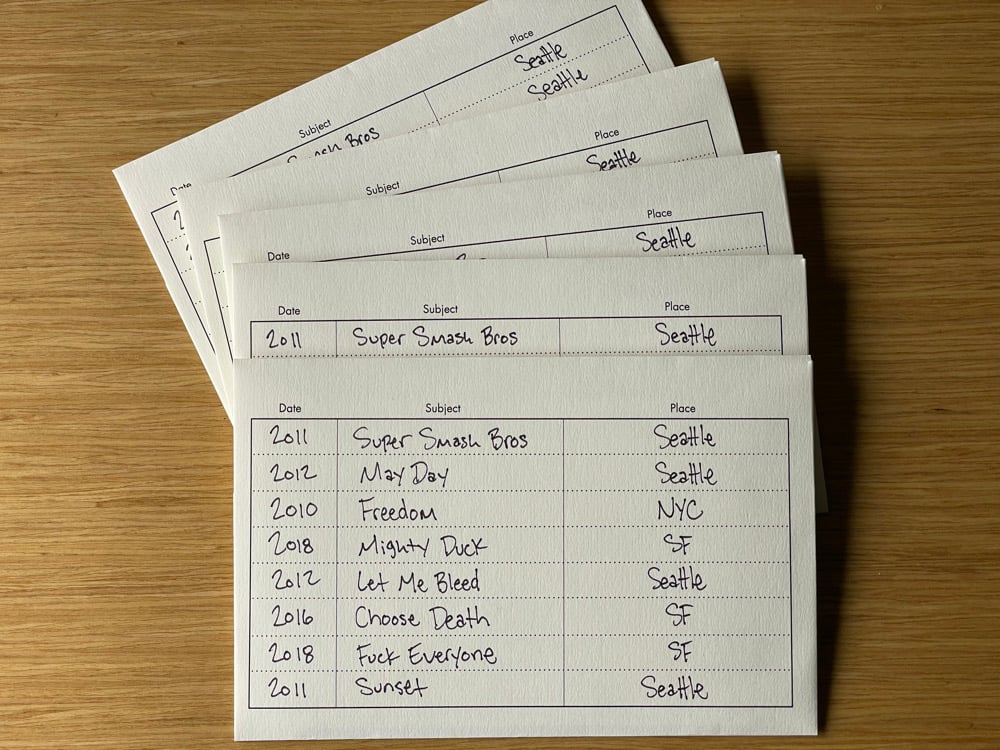 Place
Seattle
Seattle
Subject
Bros
Date
Place
Seattle
Subject
Place
Seattle
Subject
Date
Date Subject Place
2011 Super Smash Bros Seattle
Date Subject Place
2011 Super Smash Bros Seattle
2012 May Day Seattle
2010 Freedom NYC
2018 Mighty Duck SF
2012 Let Me Bleed Seattle
2016 Choose Death SF
2018 Fuck Everyone SF
2011 Sunset Seattle